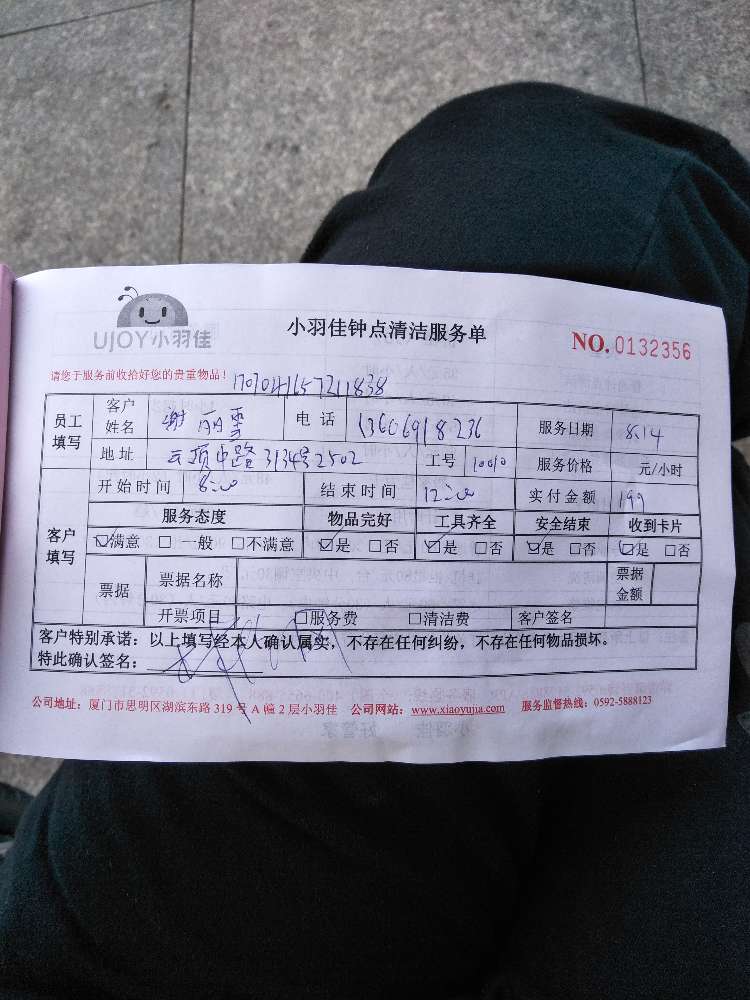 UJOY小羽佳
小羽佳钟点清洁服务单
NO. 0132356
请您于服务前收拾好您的贵重物品!
员工填写 客户姓名 谢丽雪 电话 13606918236 服务日期 8.14
地址 云顶中路3134号2502 工号 10010 服务价格 元/小时
客户填写 开始时间 8:00 结束时间 12:00 实付金额 199
服务态度 物品完好 工具齐全 安全结束 收到卡片
☑满意 □一般 □不满意 ☑是 □否 ☑是 □否 ☑是 □否 ☑是 □否
票据 票据名称 票据金额
开票项目 □服务费 □清洁费 客户签名
客户特别承诺:以上填写经本人确认属实,不存在任何纠纷,不存在任何物品损坏。
特此确认签名:
公司地址:厦门市思明区湖滨东路 319 号 A 幢 2 层小羽佳 公司网站:www.xiaoyujia.com 服务监督热线:0592-5888123